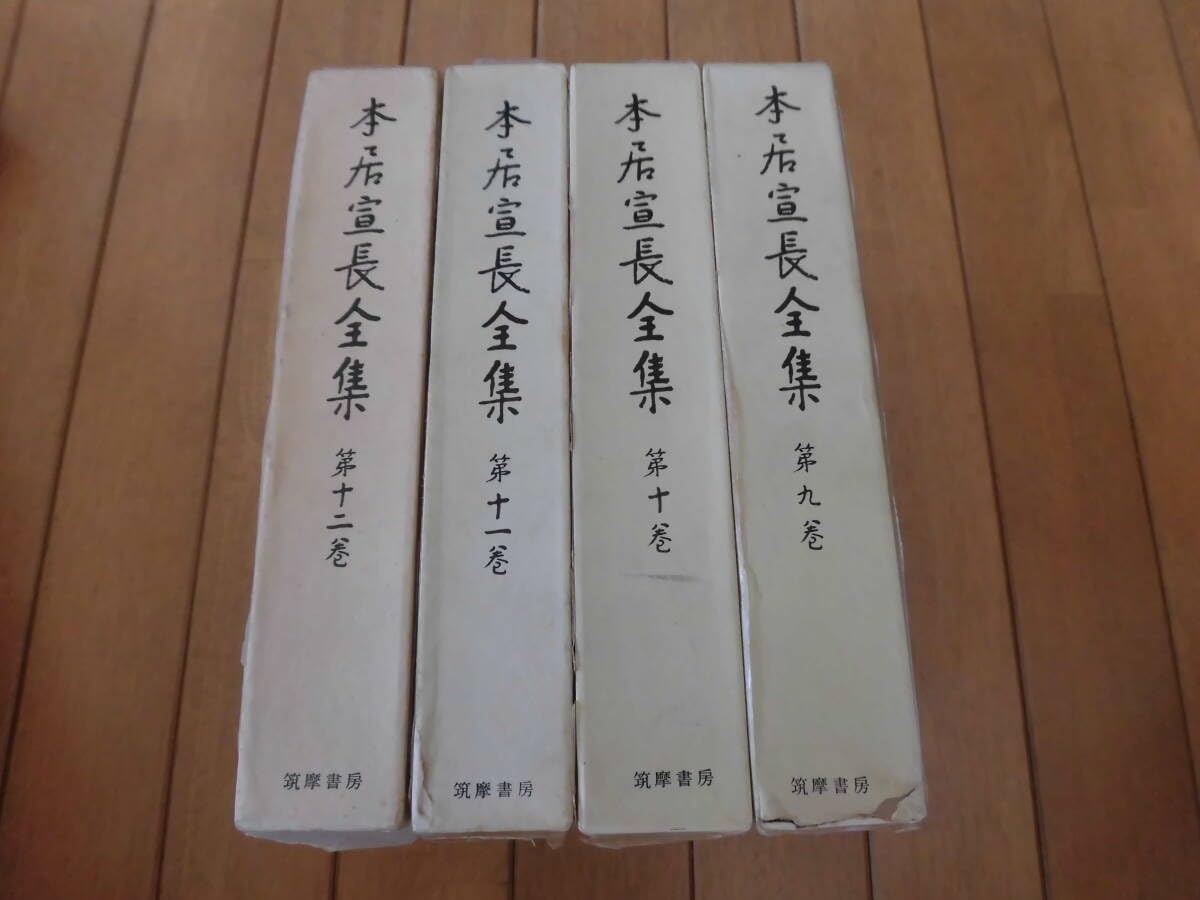 本居宣長全集
第九巻
筑摩書房
本居宣長全集
第十巻
筑摩書房
本居宣長全集
第十一巻
筑摩書房
本居宣長全集
第十二巻
筑摩書房